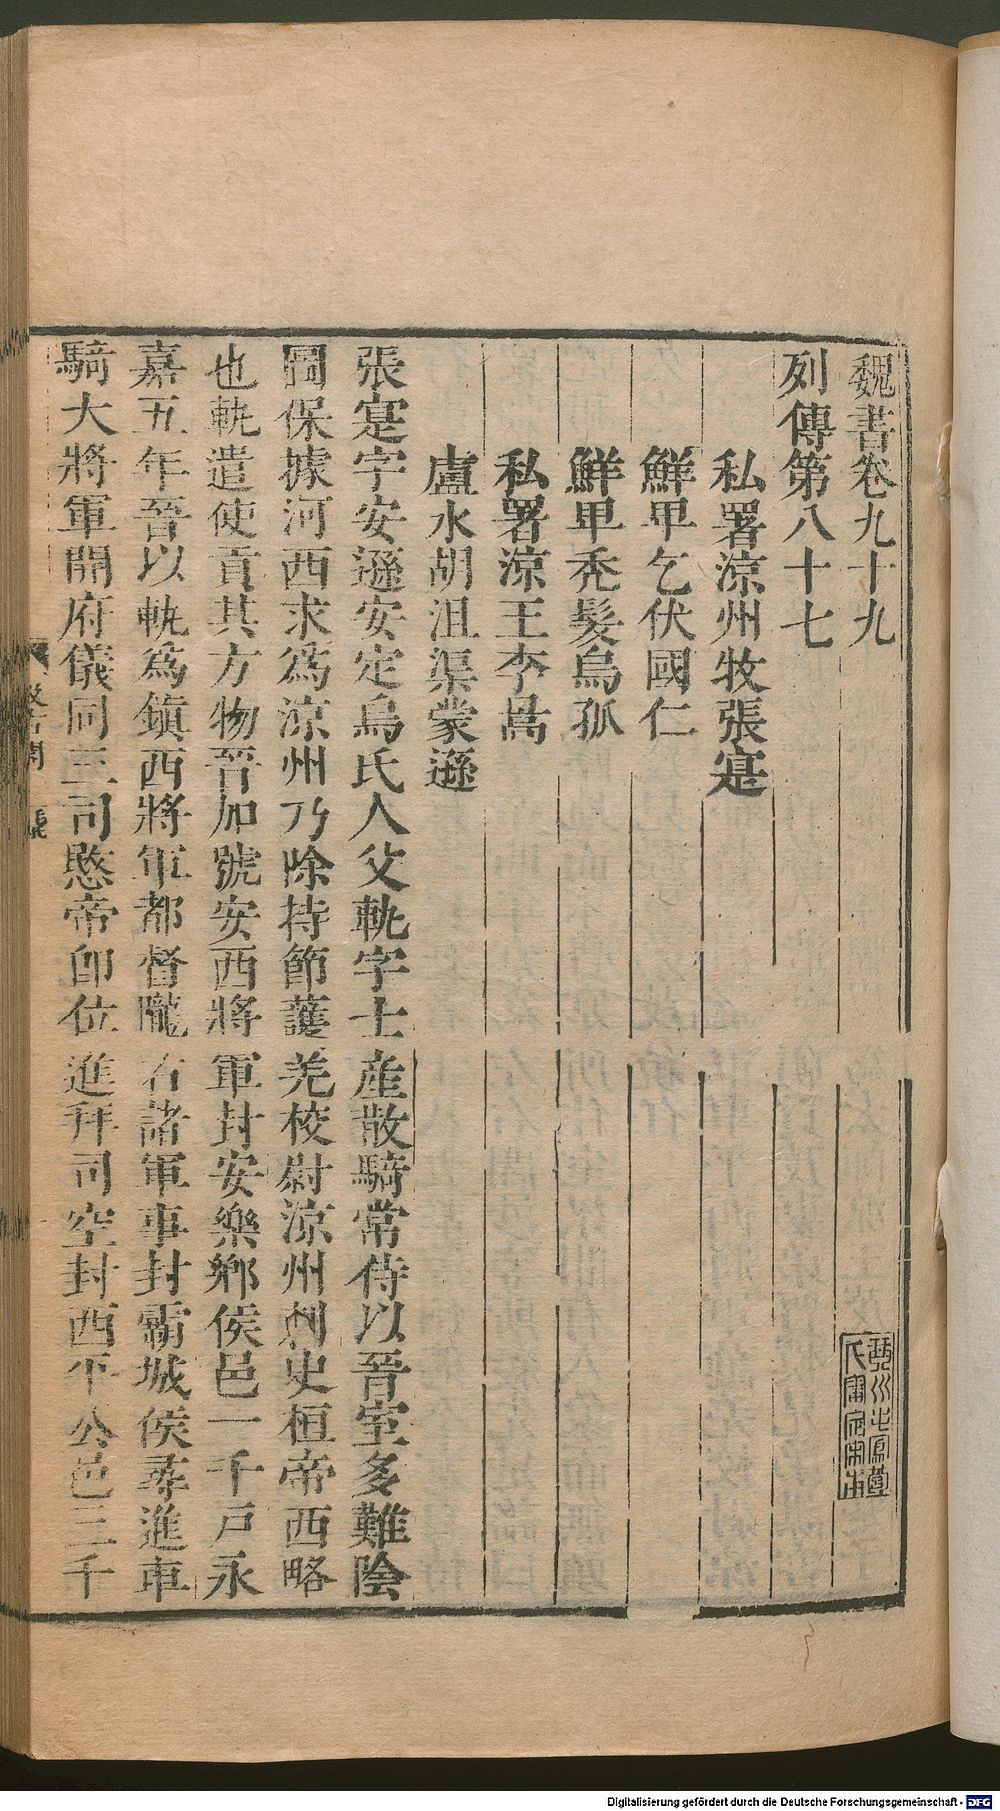 魏書卷九十九
列傳第八十七
私署涼州牧張寔
鮮卑乞伏國仁
鮮卑禿髮烏孤
私署涼王李暠
盧水胡沮渠蒙遜
張寔字安遜安定烏氏人父軌字士產散騎常侍以晉室多難陰
圖保據河西求為涼州乃除持節護羌校尉涼州刺史桓帝西略
也軌遣使貢其方物晉加號安西將軍封安樂鄉侯邑一千戶永
嘉五年晉以軌為鎮西將軍都督隴右諸軍事封霸城侯尋進車
騎大將軍開府儀同三司愍帝卽位進拜司空封西平公邑三千
Digitalisierung gefördert durch die Deutsche Forschungsgemeinschaft - DFG